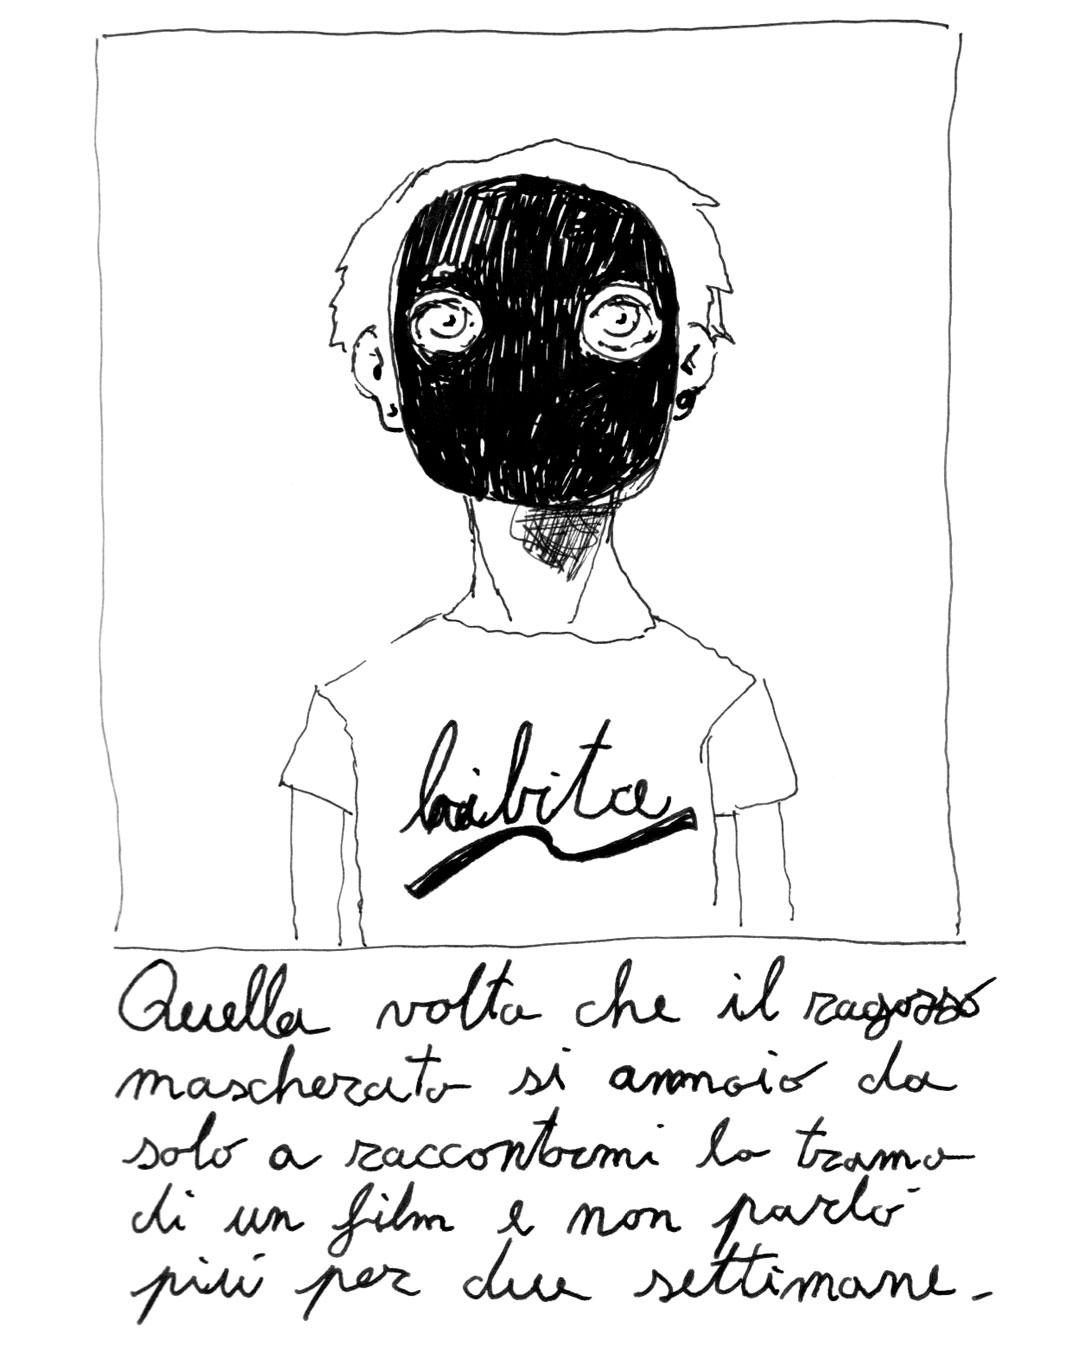 bibita
Quella volta che il ragazzo
mascherato si annoiò da
solo a raccontarmi la trama
di un film e non parlò
più per due settimane.